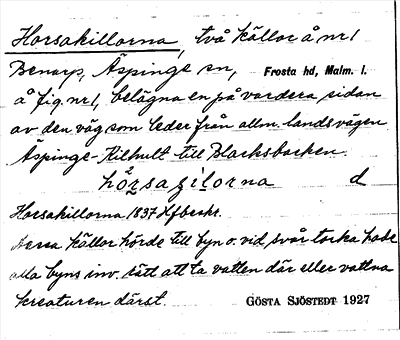 Horsakillorna, två källor å nr 1
Benarp, Äspinge sn, Frosta hd, Malm. l.
å fig. nr 1, belägna en på vardera sidan
av den väg som leder från allm. landsvägen
Äspinge-Kilhult till Blacksbacken.
hȯ̀rsaʒilorna d
Horsakillorna 1837 Hfbeskr.
Dessa källor hörde till byn o. vid svår torka hade
alla byns inv. rätt att ta vatten där eller vattna
kreaturen därst. GÖSTA SJÖSTEDT 1927